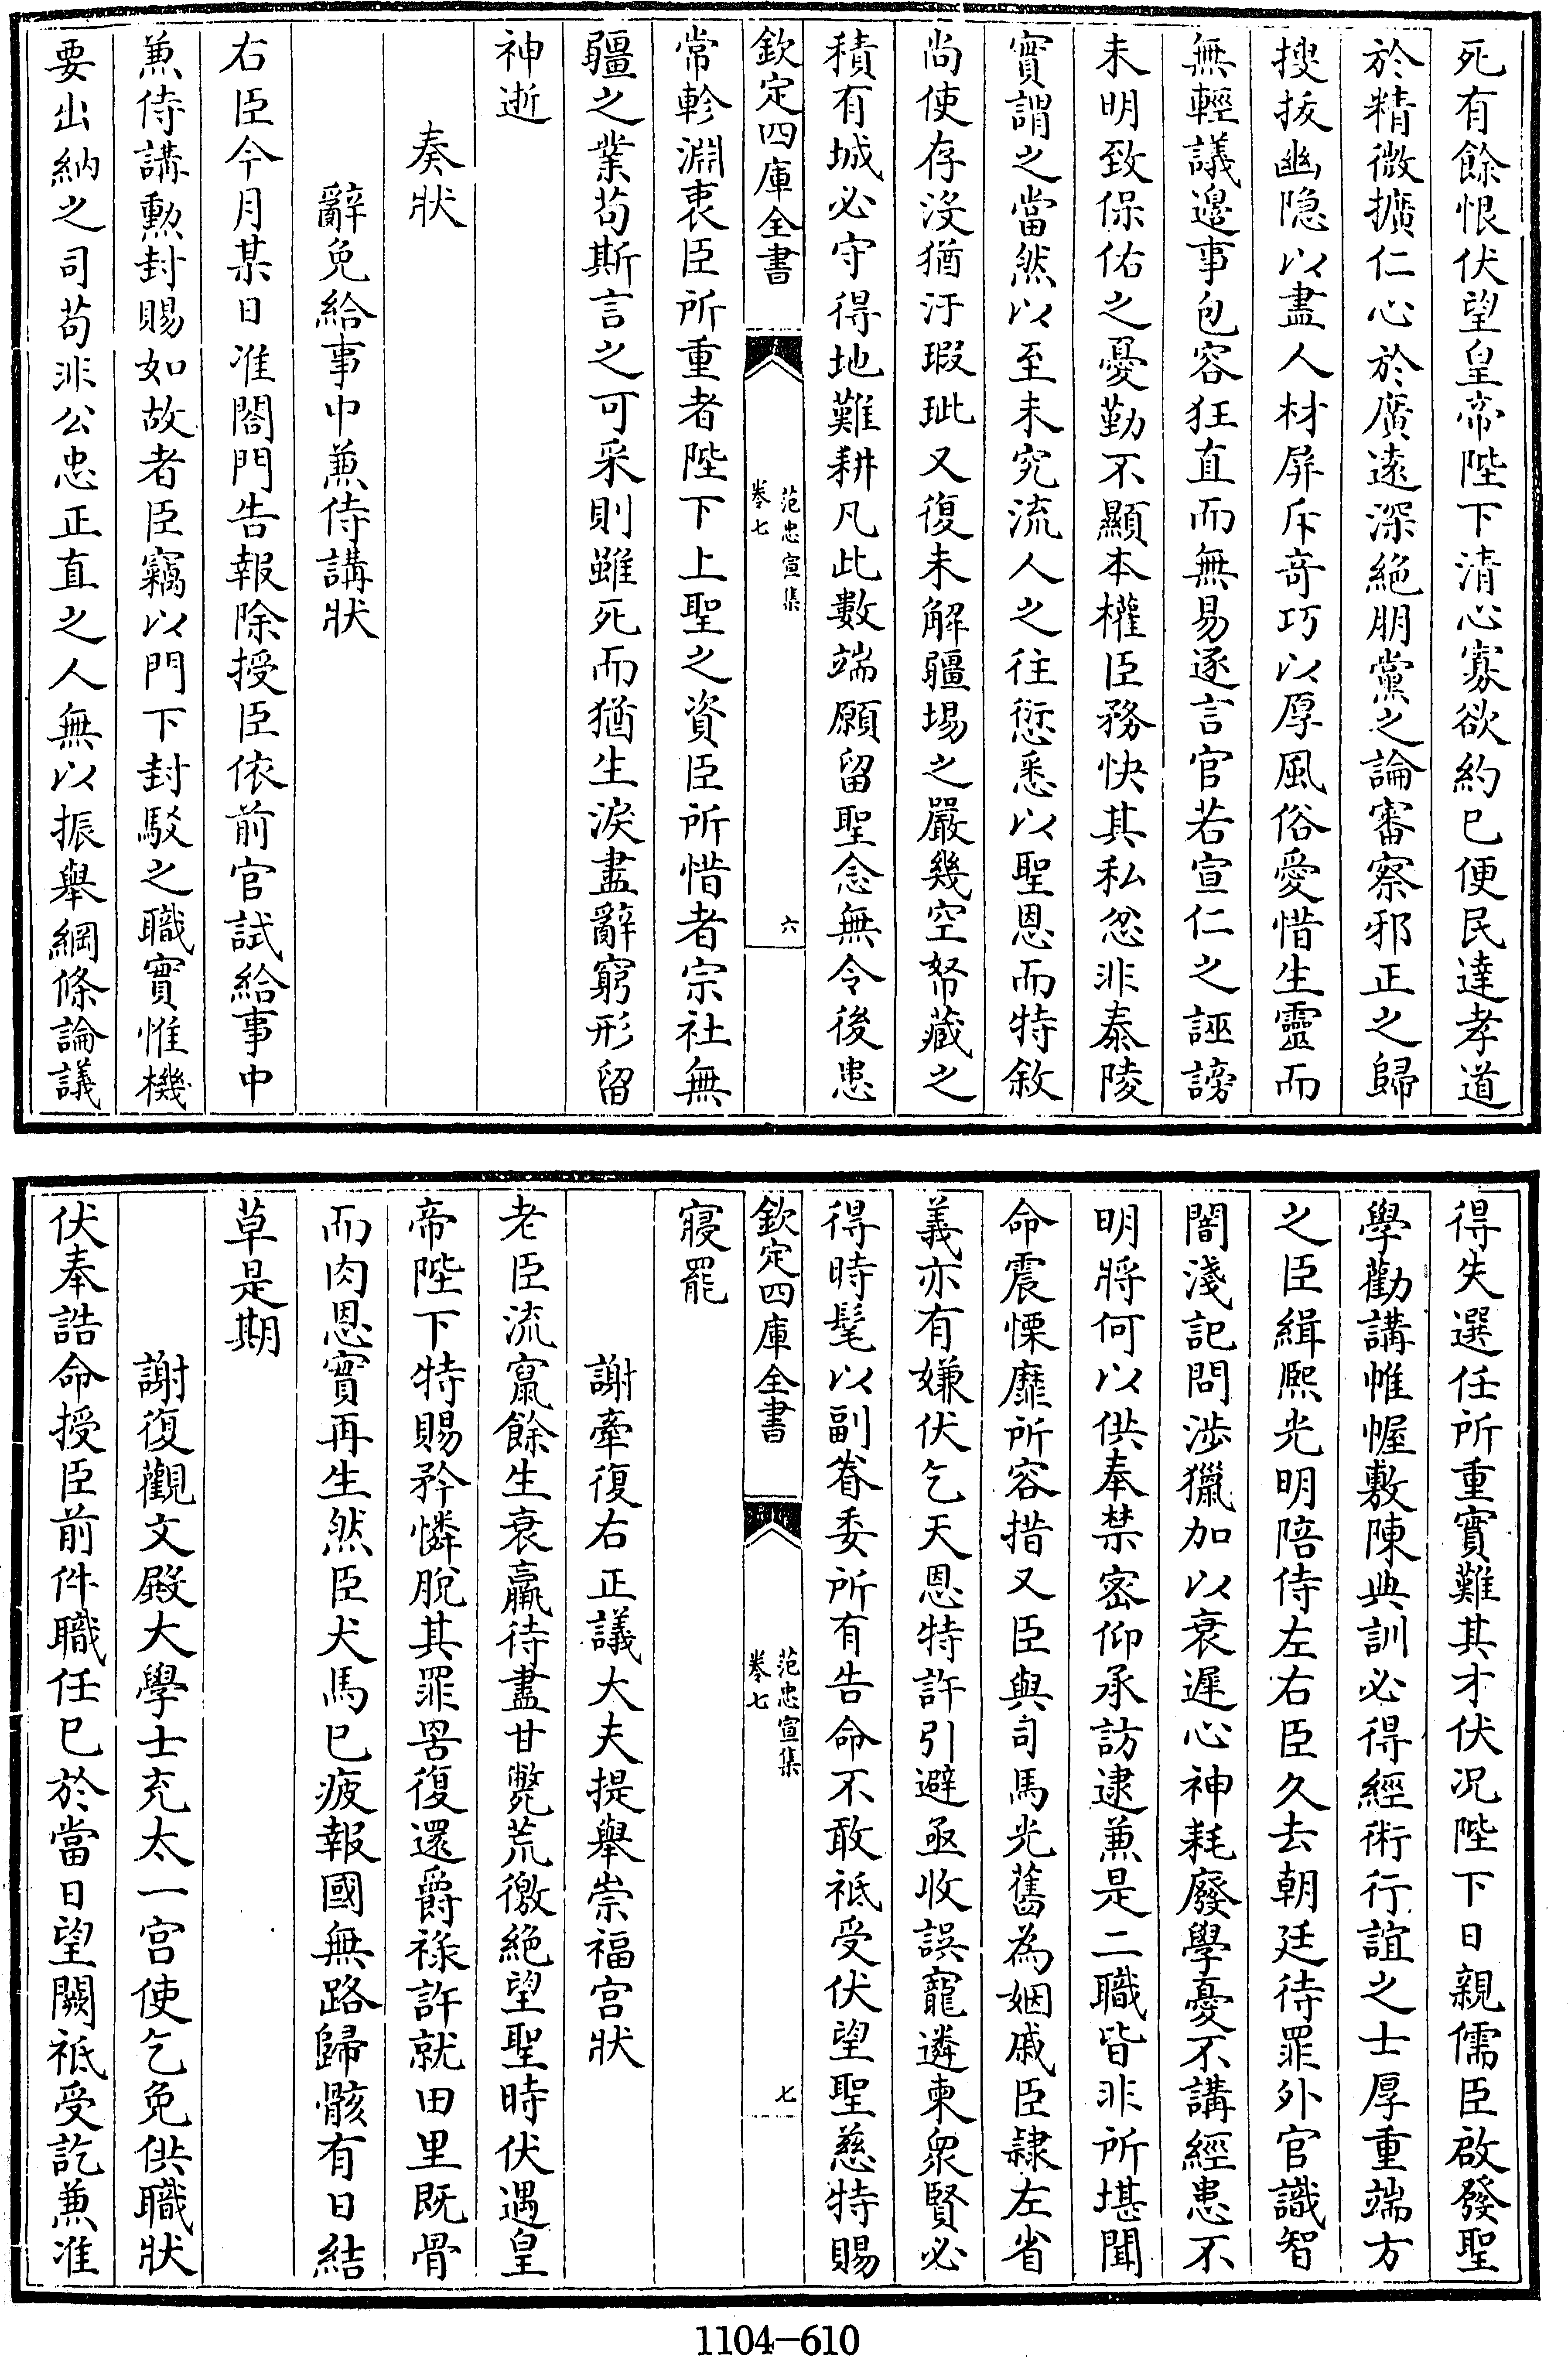 死有餘恨伏望皇帝陛下清心寡欲約已便民達孝道
於精微擴仁心於廣遠深絶朋黨之論審察邪正之歸
搜抜幽隠以盡人材屏斥奇巧以厚風俗愛惜生靈而
無輕議邉事包容狂直而無易逐言官若宣仁之誣謗
未明致保佑之憂勤不顯本權臣務快其私忿非泰陵
實謂之當然以至未究流人之往愆悉以聖恩而特敘
尚使存没猶汙瑕玼又復未解疆埸之嚴幾空帑藏之
積有城必守得地難耕凡此數端願留聖念無令後患
欽定四庫全書
范忠宣集
卷七
六
常軫淵衷臣所重者陛下上聖之資臣所惜者宗社無
疆之業茍斯言之可采則雖死而猶生淚盡辭窮形留
神逝
奏狀
辭免給事中兼侍講狀
右臣今月某日准閤門告報除授臣依前官試給事中
兼侍講勲封賜如故者臣竊以門下封駁之職實惟機
要出納之司茍非公忠正直之人無以振舉綱條論議
得失選任所重實難其才伏况陛下日親儒臣啟發聖
學勸講帷幄敷陳典訓必得經術行誼之士厚重端方
之臣緝熙光明陪侍左右臣久去朝廷待罪外官識智
闇淺記問涉獵加以衰遲心神耗廢學憂不講經患不
明將何以供奉禁宻仰承訪逮兼是二職皆非所堪聞
命震慄靡所容措又臣與司馬光舊為姻戚臣隷左省
義亦有嫌伏乞天恩特許引避亟收誤寵遴柬衆賢必
得時髦以副眷委所有告命不敢祗受伏望聖慈特賜
欽定四庫全書
范忠宣集
卷七
七
寢罷
謝牽復右正議大夫提舉崇福宫狀
老臣流竄餘生衰羸待盡甘斃荒徼絶望聖時伏遇皇
帝陛下特賜矜憐脫其罪罟復還爵禄許就田里既骨
而肉恩實再生然臣犬馬已疲報國無路歸骸有日結
草是期
謝復觀文殿大學士充太一宫使乞免供職狀
伏奉誥命授臣前件職任已於當日望闕祗受訖兼准
1104-610